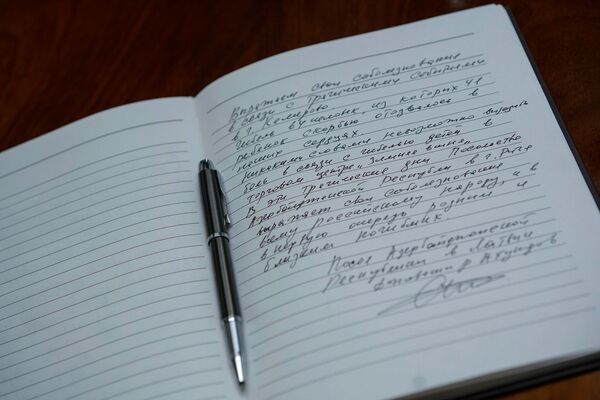 Выражаем свои соболезнования
в связи с трагическими событиями
в г. Кемерово
Гибель 64 человек, из которых 41
ребенок скорбью отозвалось в
наших сердцах
Никакими словами невозможно выразить
боль в связи с гибелью детей в
торговом центре „Зимняя вишня".
В эти трагические дни Посольство
Азербайджанской Республики в г. Рига
выражает свои соболезнования
всему Российскому народу, а в
первую очередь родным и
близким погибших.
Посол Азербайджанской
Республики в Латвии
Джаваншир Ахундов